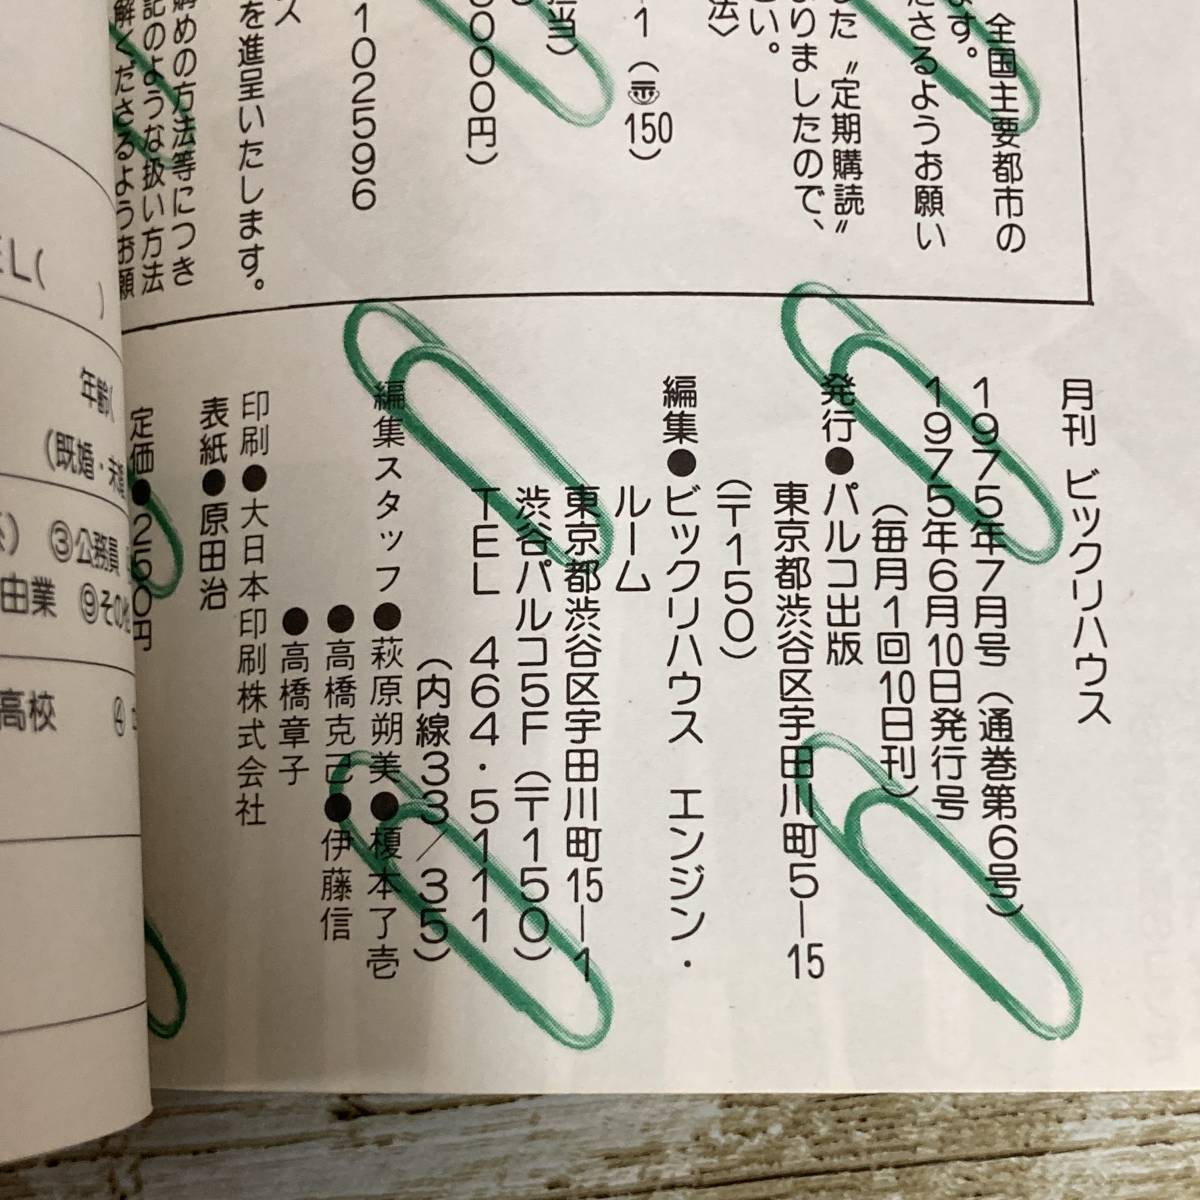 全国主要都市の
ます。
ださるようお願い
した〝定期購読〟
まりましたので、
さい。
法〉
1（〠150）
担当）
0000円）
102596
ス
を進呈いたします。
購めの方法等につき
記のような扱い方法
解くださるようお願
月刊 ビックリハウス
1975年7月号（通巻第6号）
1975年6月10日発行号
（毎月1回10日刊）
発行●パルコ出版
東京都渋谷区宇田川町5―15
（〒150）
編集●ビックリハウス エンジン・
ルーム
東京都渋谷区宇田川町15―1
渋谷パルコ5F（〒150）
TEL 464・5111
（内線33／35）
編集スタッフ●萩原朔美●榎本了壱
●高橋克己●伊藤信
●高橋章子
印刷●大日本印刷株式会社
表紙●原田治
定価●250円
EL( )
年齢
(既婚・未婚
③公務員
由業 ⑨その他
高校 ④